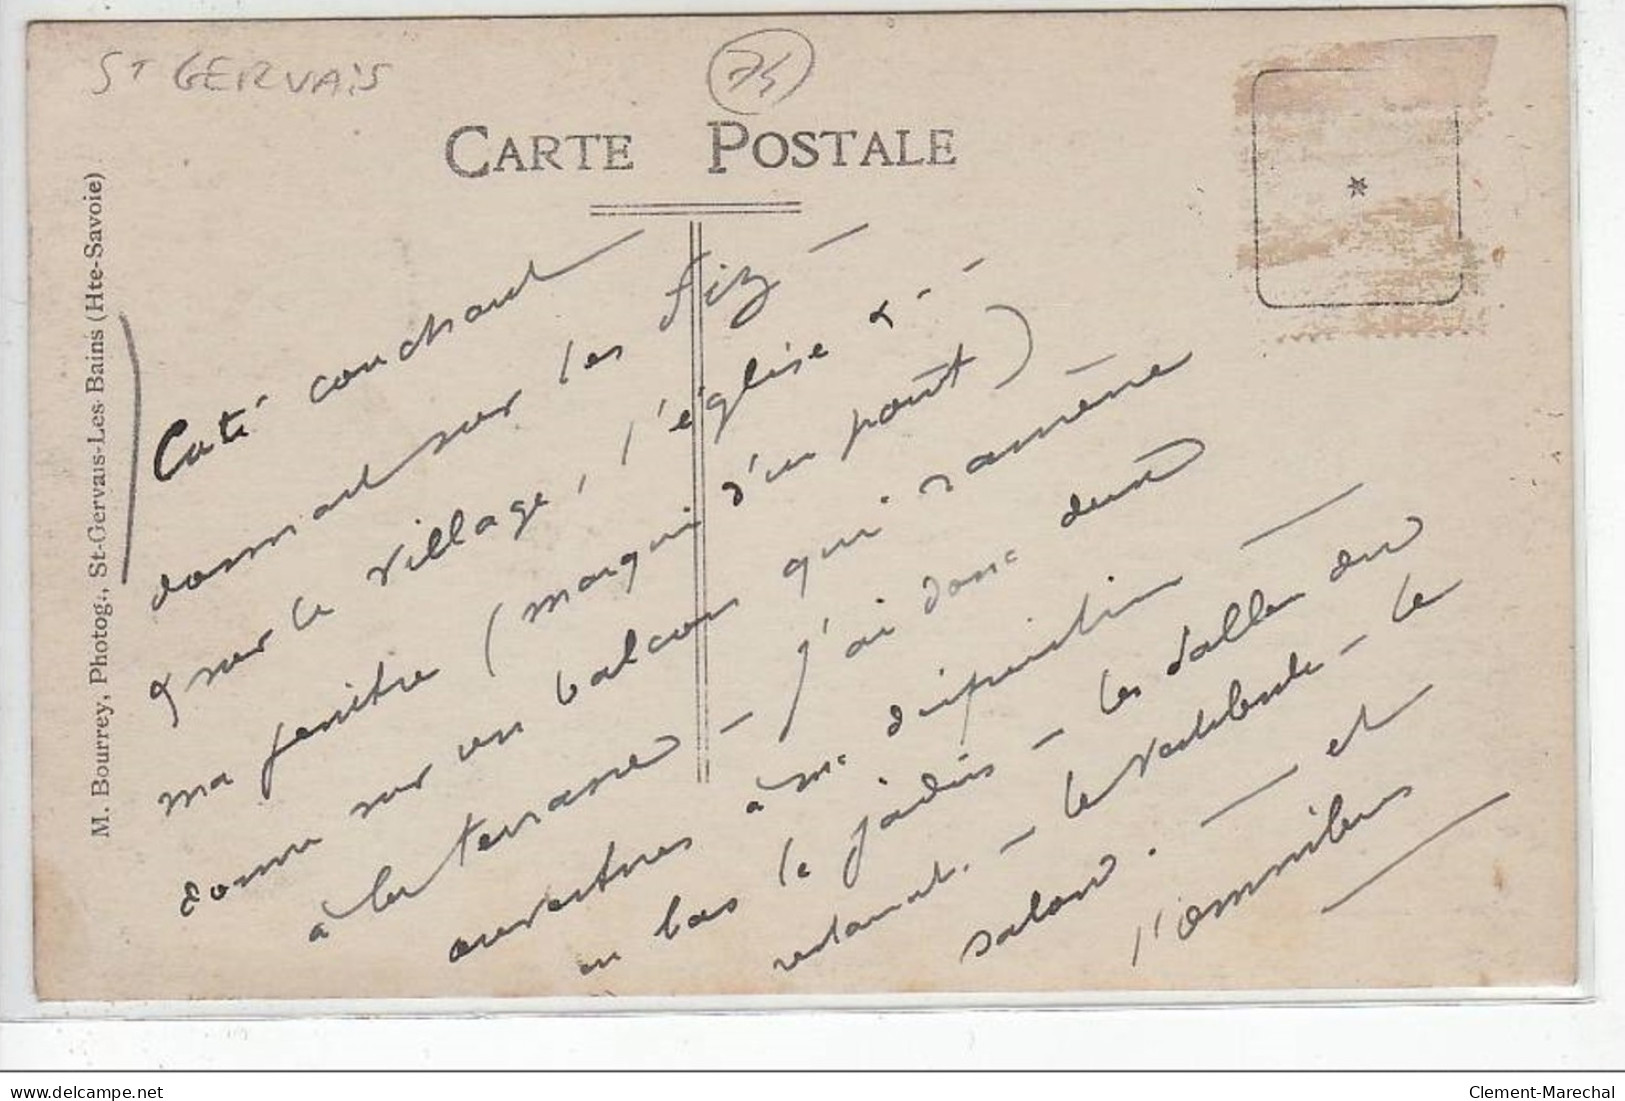 ST GERVAIS
74
CARTE POSTALE
M. Bourrey, Photog., St-Gervais-Les-Bains (Hte-Savoie)
Coté couchant
donnant sur les Fiz -
& sur le village, l'église & - -
ma fenêtre (marqué d'un point)
donne sur un balcon qui ramène
à la terrasse - J'ai donc deux
ouvertures à ma disposition
en bas le jardin - les dalles du
restaurant. - le vestibule - le
salon. - et
l'omnibus
delcampe.net
Clement-Marechal